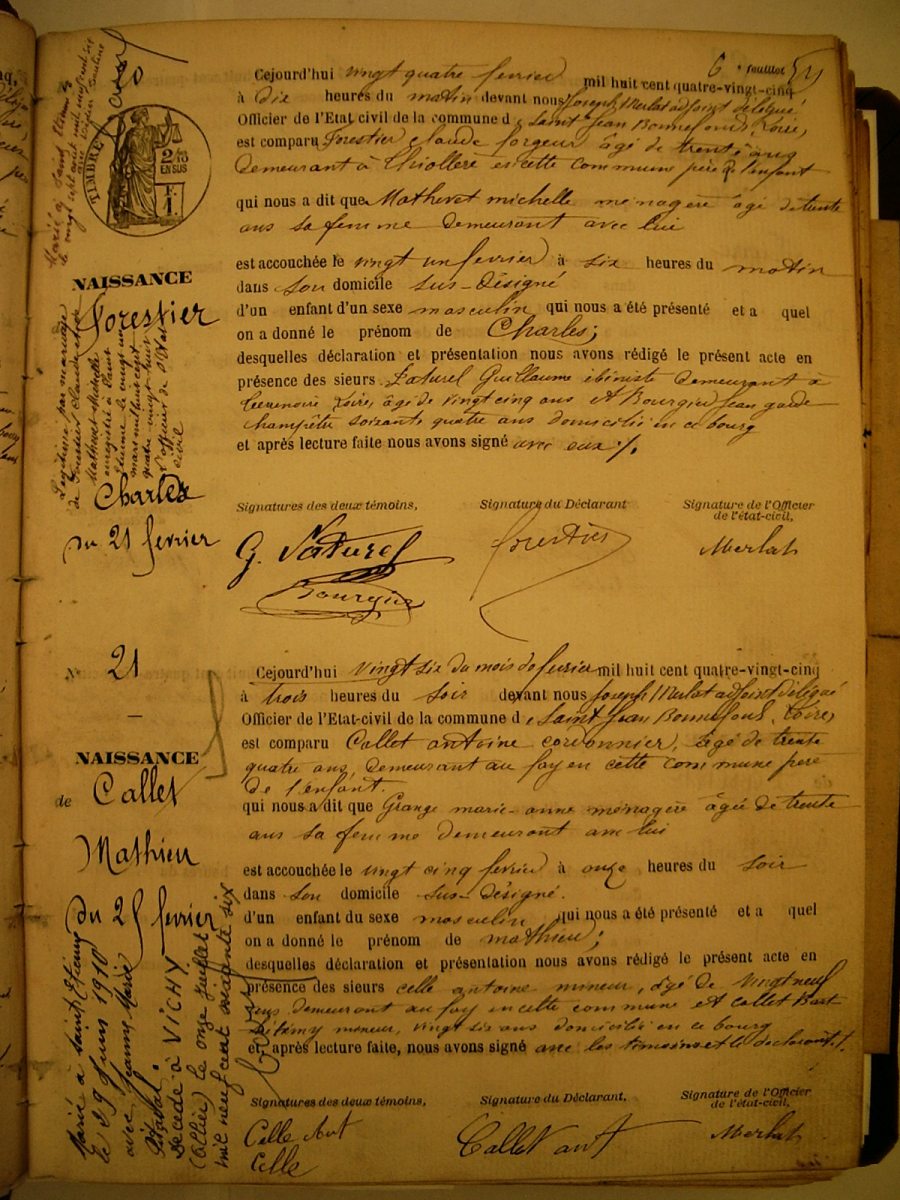 6 e feuillet
20
TIMBRE
2/10
EN SUS
NAISSANCE
Forestier
Charles
Du 21 fevrier
Marié à Saint Etienne
le vingt sept avril mil neuf cent six
Légitimé par mariage
de Forestier Claude et de
Mathevet Michelle
enregistré à Saint
Etienne le vingt un
mars mil huit cent
quatre vingt huit
L'officier de l'Etat
civil
Cejourd'hui vingt quatre fevrier mil huit cent quatre-vingt-cinq
à dix heures du matin devant nous Joseph Merlat adjoint délégué
Officier de l'Etat civil de la commune d e Saint Jean Bonnefonds, Loire,
est comparu Forestier Claude forgeur âgé de trente ans
demeurant à Thiollère en cette commune père de l'enfant
qui nous a dit que Mathevet michelle ménagère âgé de trente
ans sa femme demeurant avec lui
est accouchée le vingt un fevrier à six heures du matin
dans son domicile sus-désigné
d'un enfant d'un sexe masculin qui nous a été présenté et a quel
on a donné le prénom de Charles;
desquelles déclaration et présentation nous avons rédigé le présent acte en
présence des sieurs Faturel Guillaume ébéniste demeurant à
Terrenoire, Loire, âgé de vingt cinq ans et Bourgier Jean garde
champêtre soixante quatre ans domicilié en ce bourg
et après lecture faite nous avons signé avec eux ./.
Signatures des deux témoins,
Signature du Déclarant
Signature de l'Officier
de l'état-civil,
G. Faturel
Forestier
Merlat
Bourgier
N° 21
NAISSANCE
de Callet
Mathieu
Du 25 fevrier
Marié à Saint Etienne
le 29 Juin 1910
avec Jeanne Marie
Décédé à VICHY
(Allier) le onze Juillet
mil neuf cent soixante six
Cejourd'hui vingt six du mois de fevrier mil huit cent quatre-vingt-cinq
à trois heures du soir devant nous Joseph Merlat adjoint délégué
Officier de l'Etat-civil de la commune d e Saint Jean Bonnefonds, Loire,
est comparu Callet antoine cordonnier, âgé de trente
quatre ans, demeurant au fay en cette commune père
de l'enfant.
qui nous a dit que Grange marie-anne ménagère âgée de trente
ans sa femme demeurant avec lui
est accouchée le vingt cinq fevrier à onze heures du soir
dans son domicile sus-désigné.
d'un enfant du sexe masculin qui nous a été présenté et a quel
on a donné le prénom de mathieu;
desquelles déclaration et présentation nous avons rédigé le présent acte en
présence des sieurs celle antoine mineur, âgé de vingt neuf
ans demeurant au fay en cette commune et Callet
mineur, vingt six ans domicilié en ce bourg
et après lecture faite, nous avons signé avec les témoins et le déclarant ./.
Signatures des deux témoins,
Signature du Déclarant,
Signature de l'Officier
de l'état-civil,
Celle Ant
Callet ant
Merlat
Celle